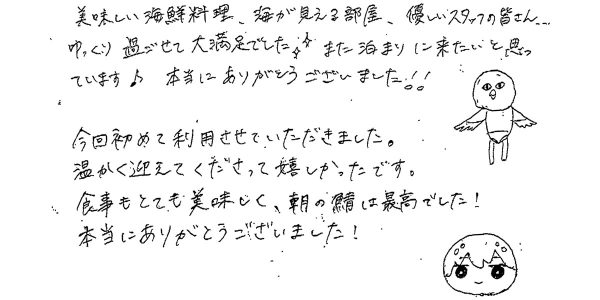 美味しい海鮮料理、海が見える部屋、優しいスタッフの皆さん...
ゆっくり過ごせて大満足でした☆☆ また泊まりに来たいと思っ
ています♪ 本当にありがとうございました!!
今回初めて利用させていただきました。
温かく迎えてくださって嬉しかったです。
食事もとても美味しく、朝の鯖は最高でした!
本当にありがとうございました!